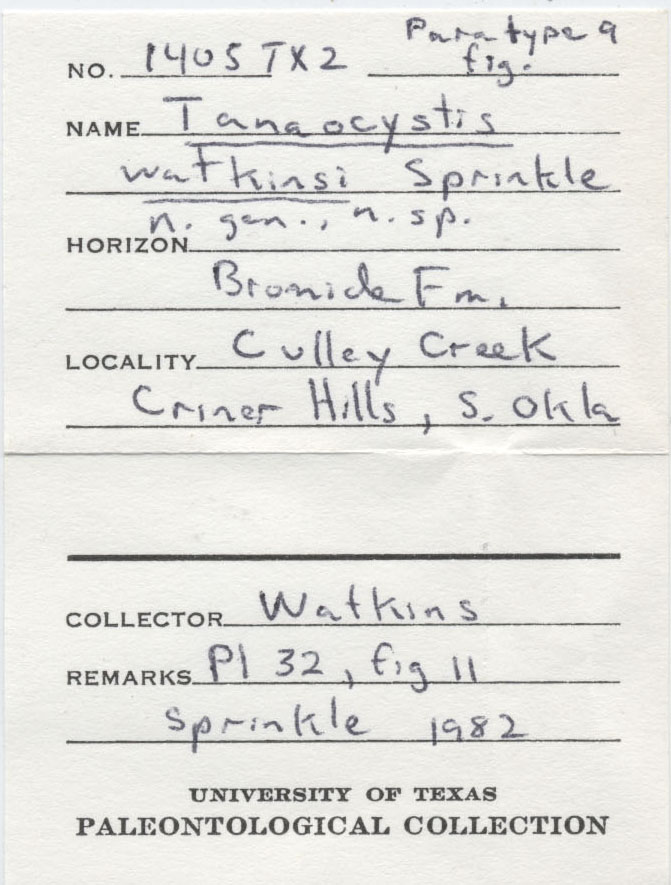 Paratype 9
NO. 1405TX2 fig.
NAME Tanaocystis
watkinsi Sprinkle
n. gen., n. sp.
HORIZON
Bromide Fm.
LOCALITY Culley Creek
Criner Hills, S. Okla
COLLECTOR Watkins
REMARKS Pl 32, fig 11
Sprinkle 1982
UNIVERSITY OF TEXAS
PALEONTOLOGICAL COLLECTION